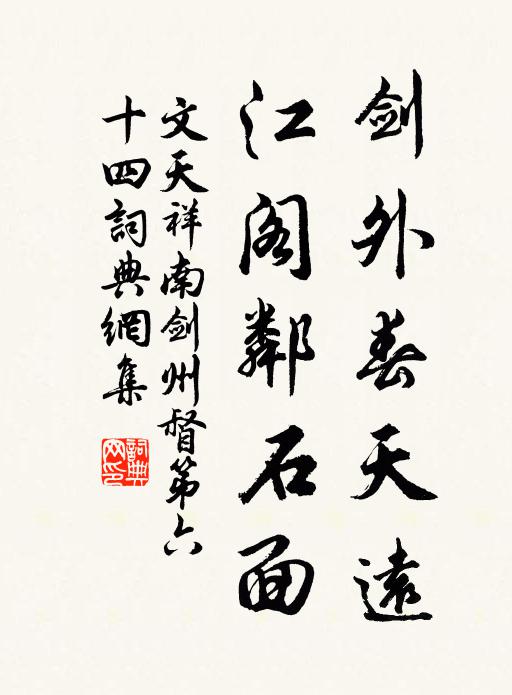 剑外春天遠
江阁鄰石面
文天祥南剑州督第六
十四詞典網集
詞典
网印